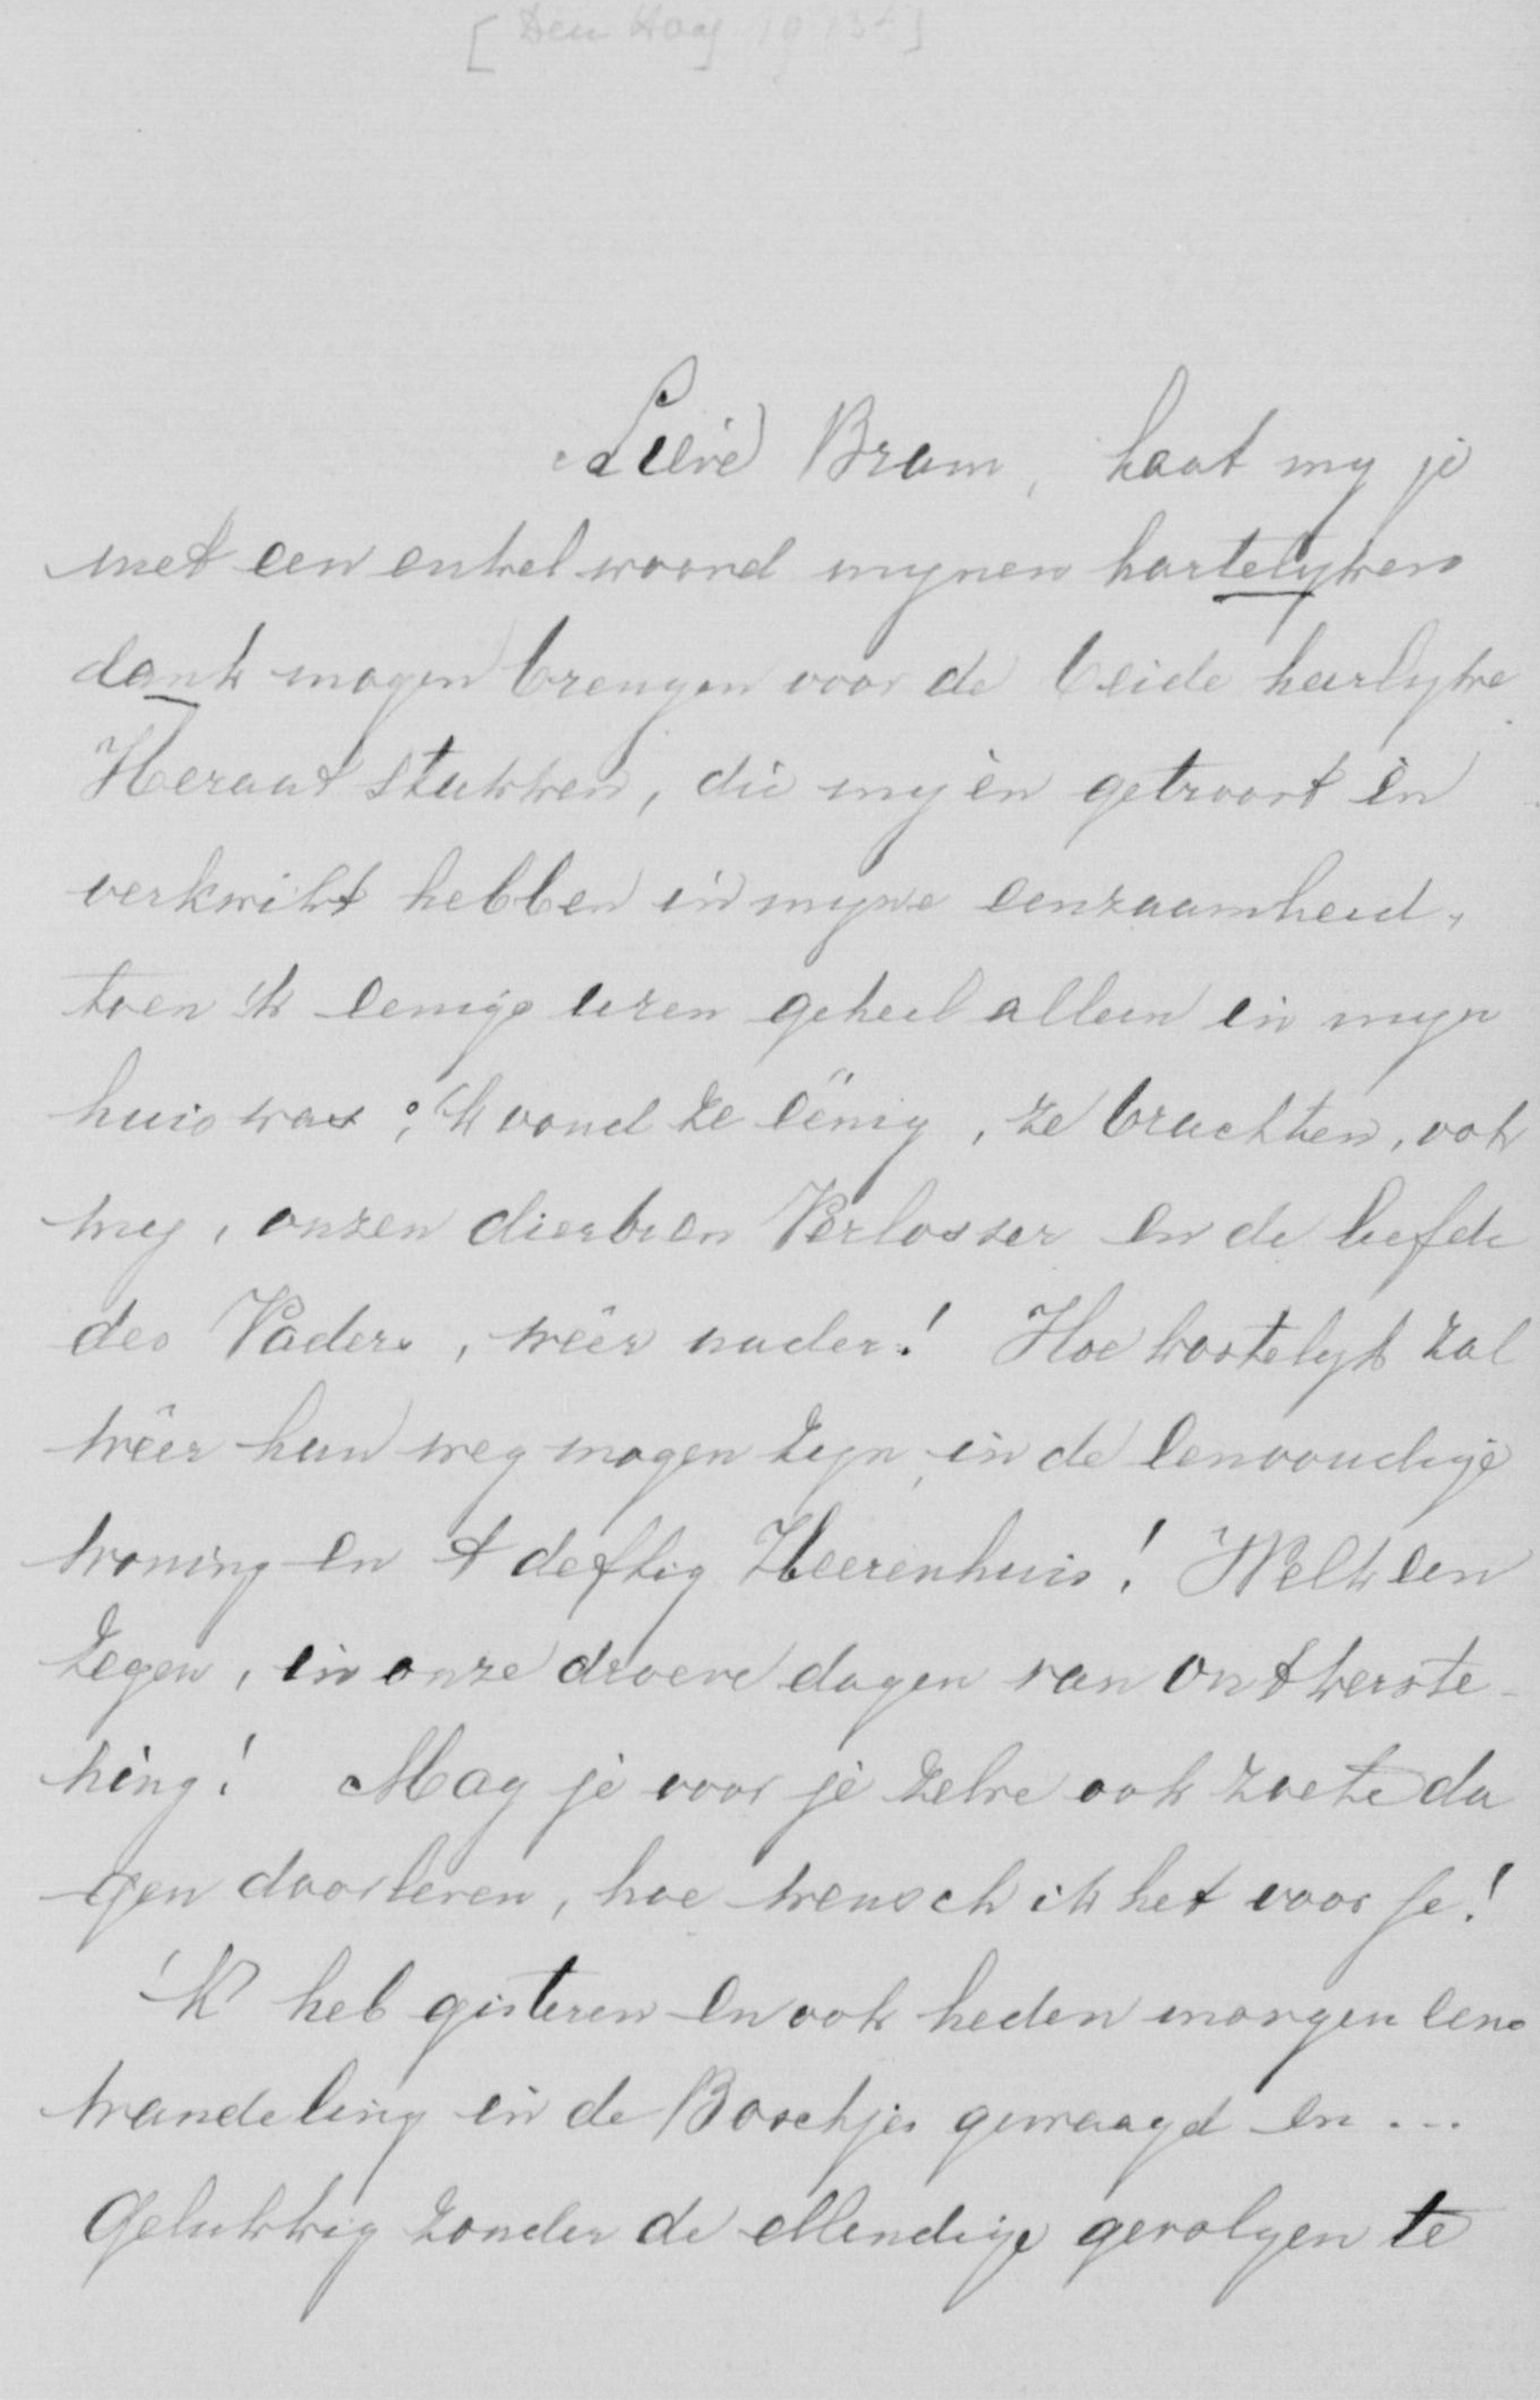 [Den Haag 1913?]
Lieve Bram, Laat my je
met een enkel woord mynen hartelyken
dank mogen brengen voor de beide heerlyke
Heraut stukken, die my èn getroost èn
verkwikt hebben in myne eenzaamheid,
toen ik eenige uren geheel alleen in myn
huis was; 'k vond ze eënig, ze brachten, ook
my, onzen dierbren Verlosser en de liefde
des Vaders, wêer nader! Hoe kostelyk zal
wêer hun weg mogen zyn in de eenvoudige
woning en 't deftig Heerenhuis! Welk een
zegen, in onze droeve dagen van ontkerste-
ning! Mag je voor je zelve ook zoete da
gen doorleven, hoe wensch ik het voor je!
'K heb gisteren en ook heden morgen eene
wandeling in de Boschjes gewaagd en ...
Gelukkig zonder de ellendige gevolgen te